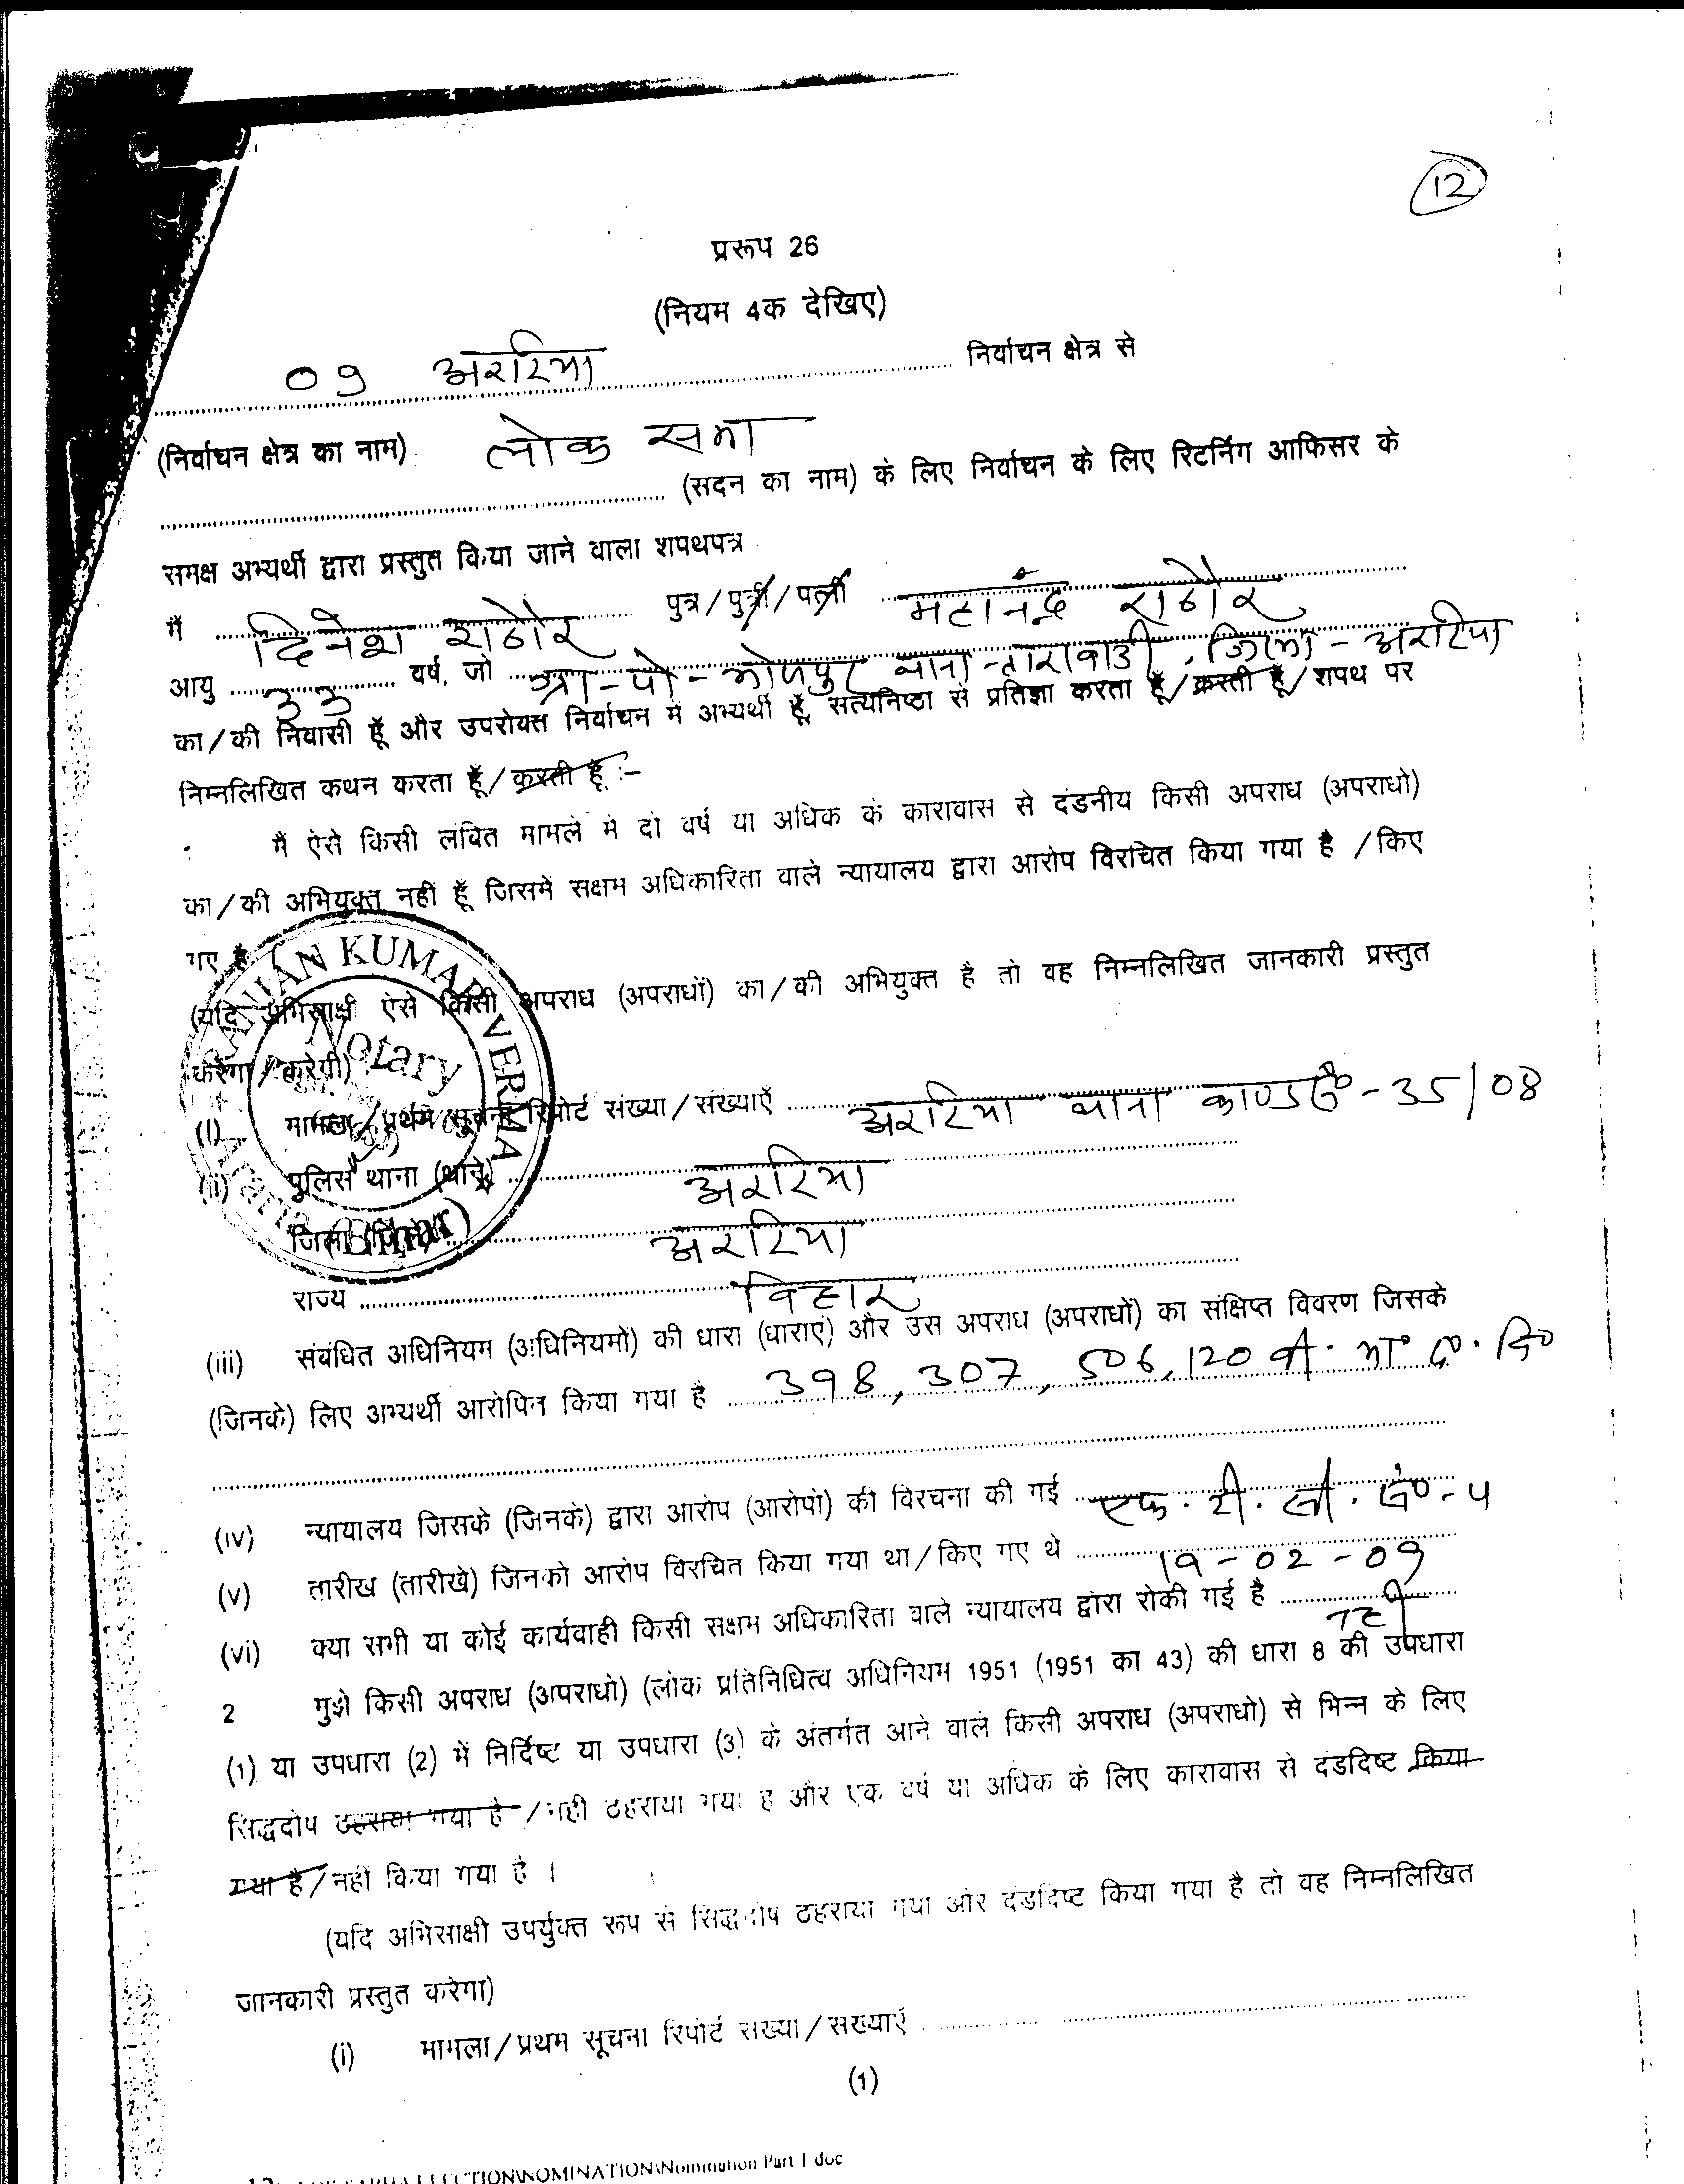 12
प्ररूप 26
(नियम 4क देखिए)
09 अररिया निर्वाचन क्षेत्र से
(निर्वाचन क्षेत्र का नाम) लोक सभा
(सदन का नाम) के लिए निर्वाचन के लिए रिटर्निंग आफिसर के
समक्ष अभ्यर्थी द्वारा प्रस्तुत किया जाने वाला शपथपत्र
मैं दिनेश राठौर पुत्र/पुत्री/पत्नी महानंद राठौर
आयु 33 वर्ष, जो ग्रा-पो- थाना-ताराबाड़ी, जिला-अररिया
का/की निवासी हूँ और उपरोक्त निर्वाचन में अभ्यर्थी हूँ, सत्यनिष्ठा से प्रतिज्ञा करता हूँ/करती हूँ/शपथ पर
निम्नलिखित कथन करता हूँ/करती हूँ :–
मैं ऐसे किसी लंबित मामले में दो वर्ष या अधिक के कारावास से दंडनीय किसी अपराध (अपराधो)
का/की अभियुक्त नहीं हूँ जिसमें सक्षम अधिकारिता वाले न्यायालय द्वारा आरोप विरचित किया गया है /किए
गए हैं
(यदि अभिसाक्षी ऐसे किसी अपराध (अपराधों) का/की अभियुक्त है तो वह निम्नलिखित जानकारी प्रस्तुत
करेगा/करेगी)
(i) मामला/प्रथम सूचना रिपोर्ट संख्या/संख्याएँ अररिया थाना काण्ड सं०-35/08
(ii) पुलिस थाना (थाने) अररिया
जिला अररिया
राज्य बिहार
RANJAN KUMAR VERMA
Notary
Araria
(Bihar)
(iii) संबंधित अधिनियम (अधिनियमों) की धारा (धाराएं) और उस अपराध (अपराधों) का संक्षिप्त विवरण जिसके
(जिनके) लिए अभ्यर्थी आरोपित किया गया है 398, 307, 506, 120 बी. भा० द०. वि०
(iv) न्यायालय जिसके (जिनके) द्वारा आरोप (आरोपों) की विरचना की गई एफ. टी. सी. सं०-५
(v) तारीख (तारीखें) जिनको आरोप विरचित किया गया था/किए गए थे 19-02-09
(vi) क्या सभी या कोई कार्यवाही किसी सक्षम अधिकारिता वाले न्यायालय द्वारा रोकी गई है नहीं
2 मुझे किसी अपराध (अपराधो) (लोक प्रतिनिधित्व अधिनियम 1951 (1951 का 43) की धारा 8 की उपधारा
(1) या उपधारा (2) में निर्दिष्ट या उपधारा (3) के अंतर्गत आने वाले किसी अपराध (अपराधो) से भिन्न के लिए
सिद्धदोष ठहराया गया है/नही ठहराया गया है और एक वर्ष या अधिक के लिए कारावास से दंडदिष्ट किया
गया है/नहीं किया गया है ।
(यदि अभिसाक्षी उपर्युक्त रूप से सिद्धदोष ठहराया गया और दंडदिष्ट किया गया है तो वह निम्नलिखित
जानकारी प्रस्तुत करेगा)
(i) मामला/प्रथम सूचना रिपोर्ट संख्या/संख्याएँ
(1)
ELECTION\NOMINATION\Nomination Part I doc